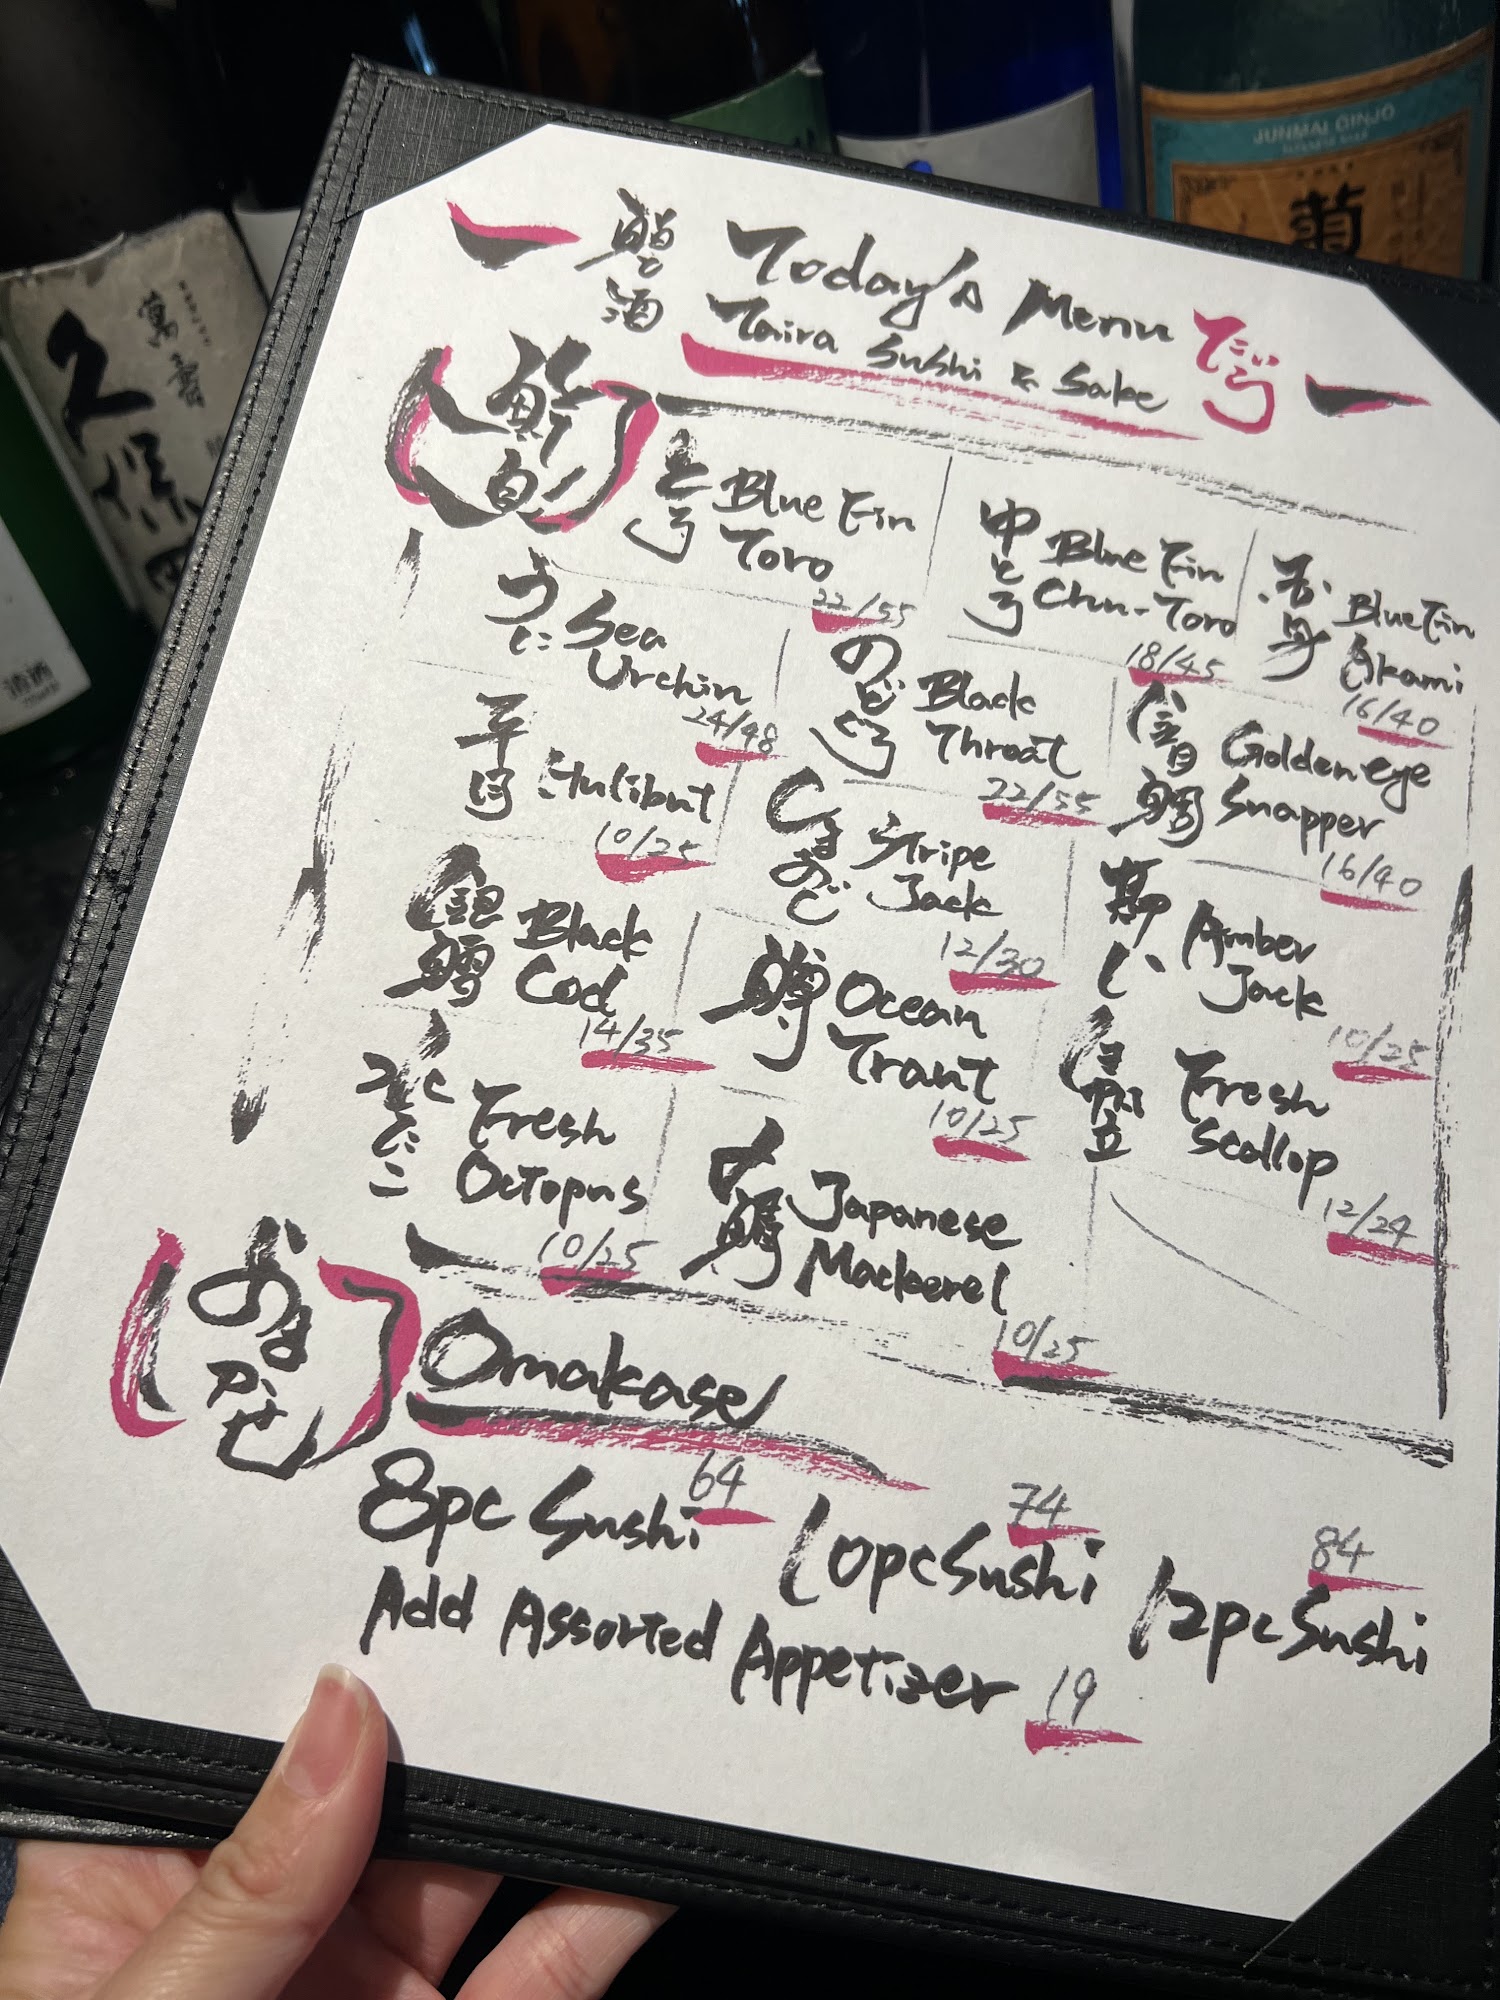 鮨と酒
Today's Menu
Taira Sushi & Sake
たいら
鮮魚
とろ
Blue Fin
Toro
22/55
中とろ
Blue Fin
Chu-Toro
18/45
赤身
Blue Fin
Akami
16/40
うに
Sea
Urchin
24/48
のどぐろ
Black
Throat
22/55
金目鯛
Goldeneye
Snapper
16/40
平目
Hulibut
10/25
しまあじ
Stripe
Jack
12/30
Amber
Jack
10/25
銀鱈
Black
Cod
14/35
鱒
Ocean
Traut
10/25
帆立
Fresh
Scallop
12/24
Fresh
Octopus
10/25
Japanese
Mackerel
10/25
おまかせ
Omakase
8pc Sushi 64
10pc Sushi 74
12pc Sushi 84
Add Assorted Appetizer 19
JUNMAI GINJO
菊
久保田
萬寿
清酒